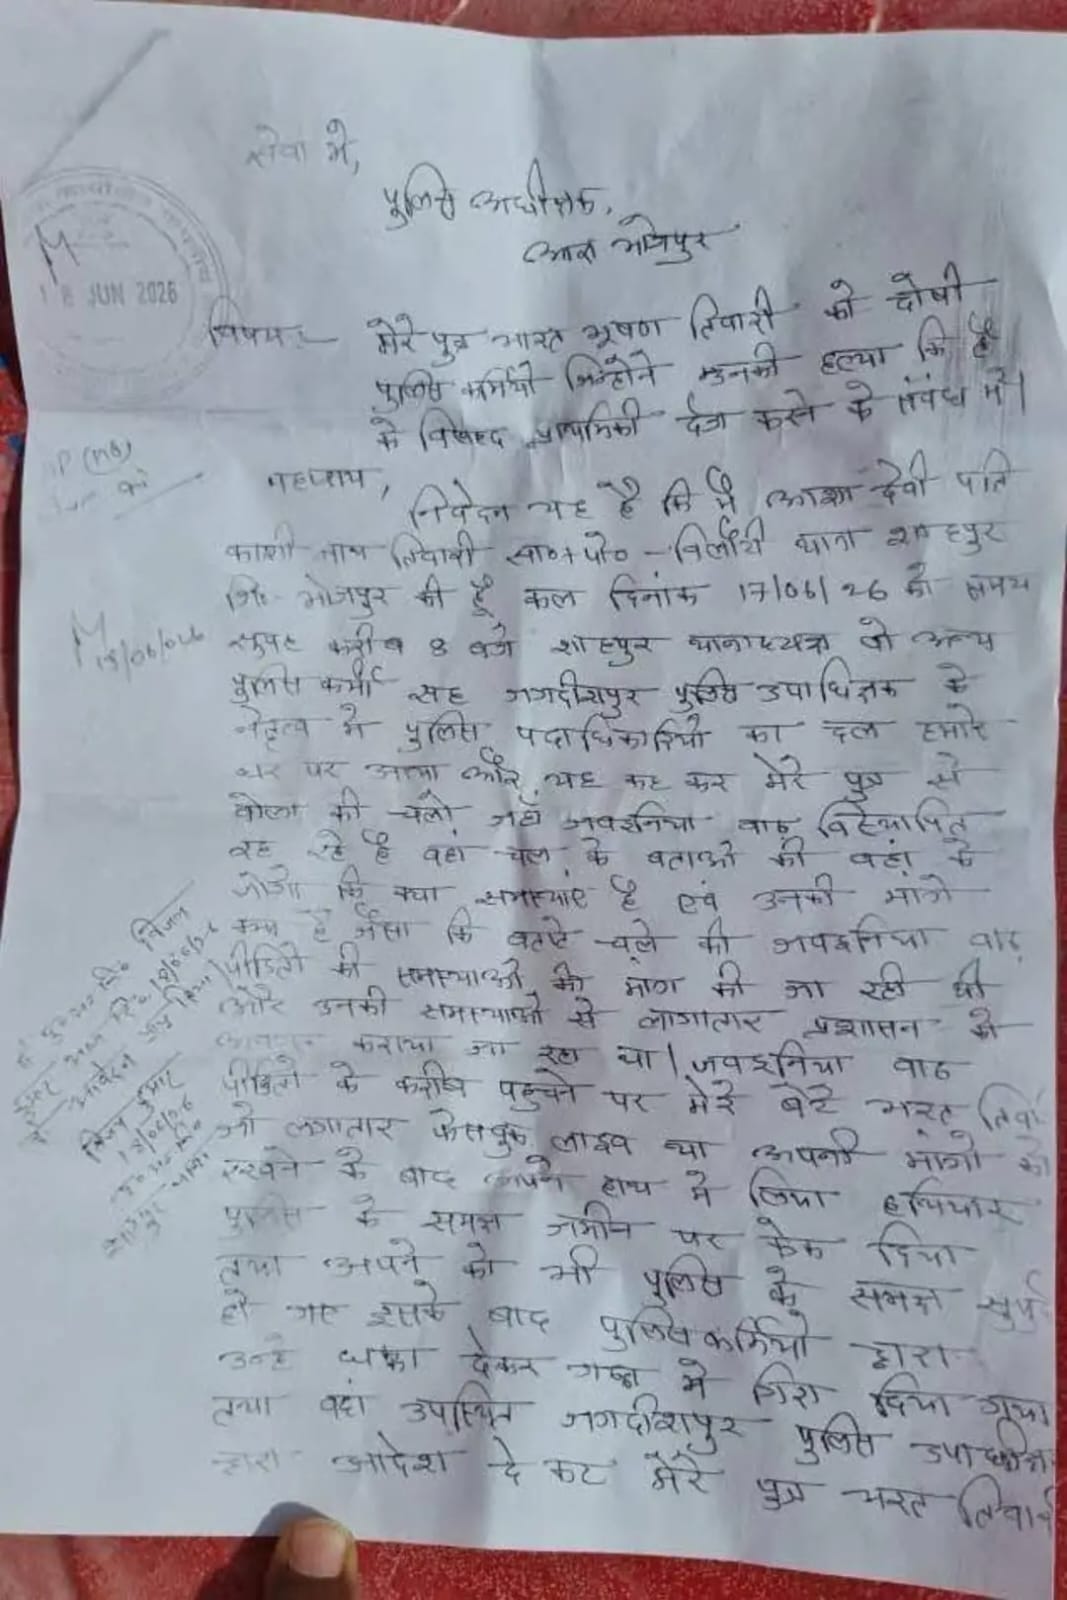 सेवा में,
पुलिस अधीक्षक,
आरा भोजपुर
18 JUN 2026
विषय :- मेरे पुत्र भारत भूषण तिवारी को दोषी
पुलिस कर्मियों जिन्होंने उनकी हत्या कि है
के विरुद्ध प्राथमिकी दर्ज करने के संबंध में।
महाशय,
निवेदन यह है कि मैं आशा देवी पति
काशी नाथ तिवारी सा०+पो० - बिलौटी थाना शाहपुर
जि० भोजपुर की हूँ कल दिनांक 17/06/26 को समय
सुबह करीब 8 बजे शाहपुर थानाध्यक्ष वो अन्य
पुलिस कर्मी सह जगदीशपुर पुलिस उपाधिक्षक के
नेतृत्व मे पुलिस पदाधिकारियों का दल हमारे
घर पर आया और यह कह कर मेरे पुत्र से
बोला की चलो जहाँ जवइनिया बाढ़ विस्थापित
रह रहे है वहां चल के बताओ की वहां के
लोगो कि क्या समस्याएं है एवं उनकी मांगे
क्या है जैसा कि बताते चले की जवइनिया बाढ़
पीड़ितों की समस्याओं की मांग की जा रही थी
और उनकी समस्याओं से लागातार प्रशासन को
कराया जा रहा था। जवइनिया बाढ
पीड़ितो के करीब पहुचने पर मेरे बेटे भरत
जो लगातार फेसबुक लाइव था अपनी मांगो को
रखने के बाद अपने हाथ मे लिया हथियार
पुलिस के समक्ष जमीन पर फेक दिया
तथा अपने को भी पुलिस के समक्ष
हो गए इसके बाद पुलिसकर्मियो द्वारा
उन्हे धक्का देकर गड्ढा मे गिरा दिया गया
तथा वहां उपस्थित जगदीशपुर पुलिस
द्वारा आदेश दे कर मेरे पुत्र भरत